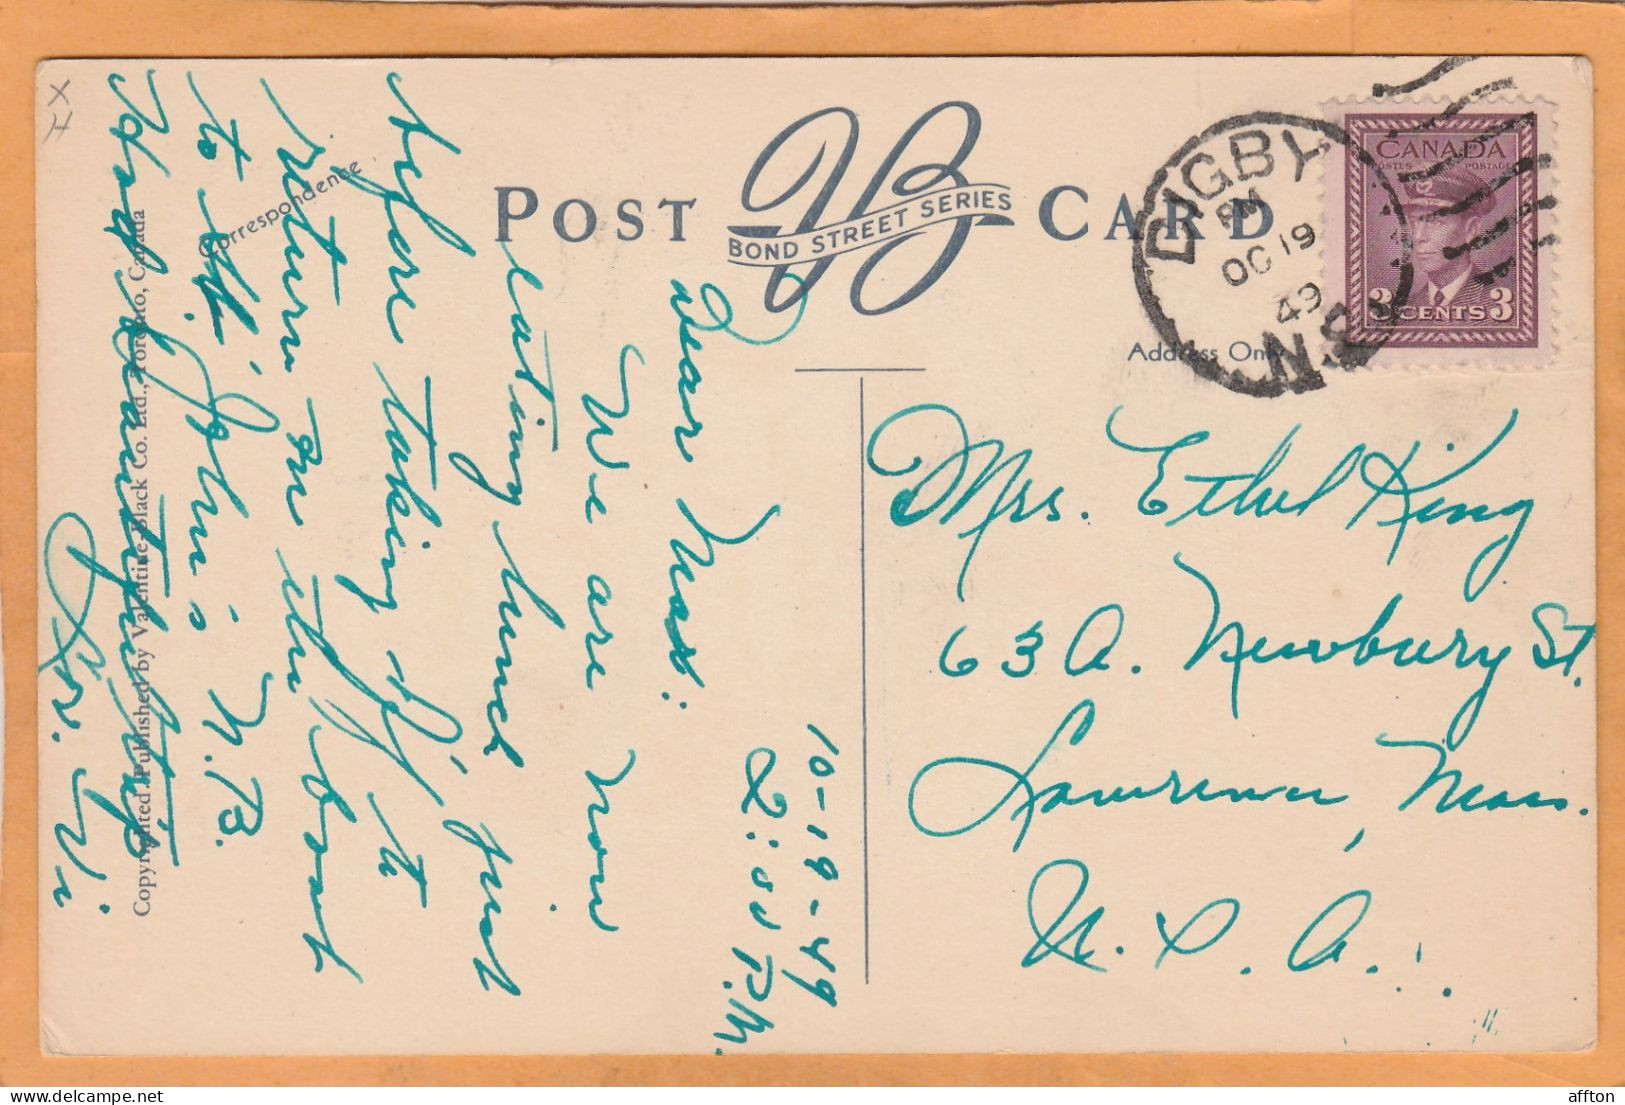 POST CARD
VB
BOND STREET SERIES
Correspondence
Address Only
DIGBY
PM
OC 19
49
N.S.
CANADA
POSTES POSTAGE
3 CENTS 3
10-19-49
2:00 P.M.
Dear Mrs.:
We are now
eating lunch just
before taking off to
return on the boat
to St. John's N.B.
Had beautiful trip
Vi
Mrs. Ethel King
63 A. Newbury St.
Lawrence, Mass.
U.S.A.
Copyrighted Published by Valentine-Black Co. Ltd., Toronto, Canada
affton